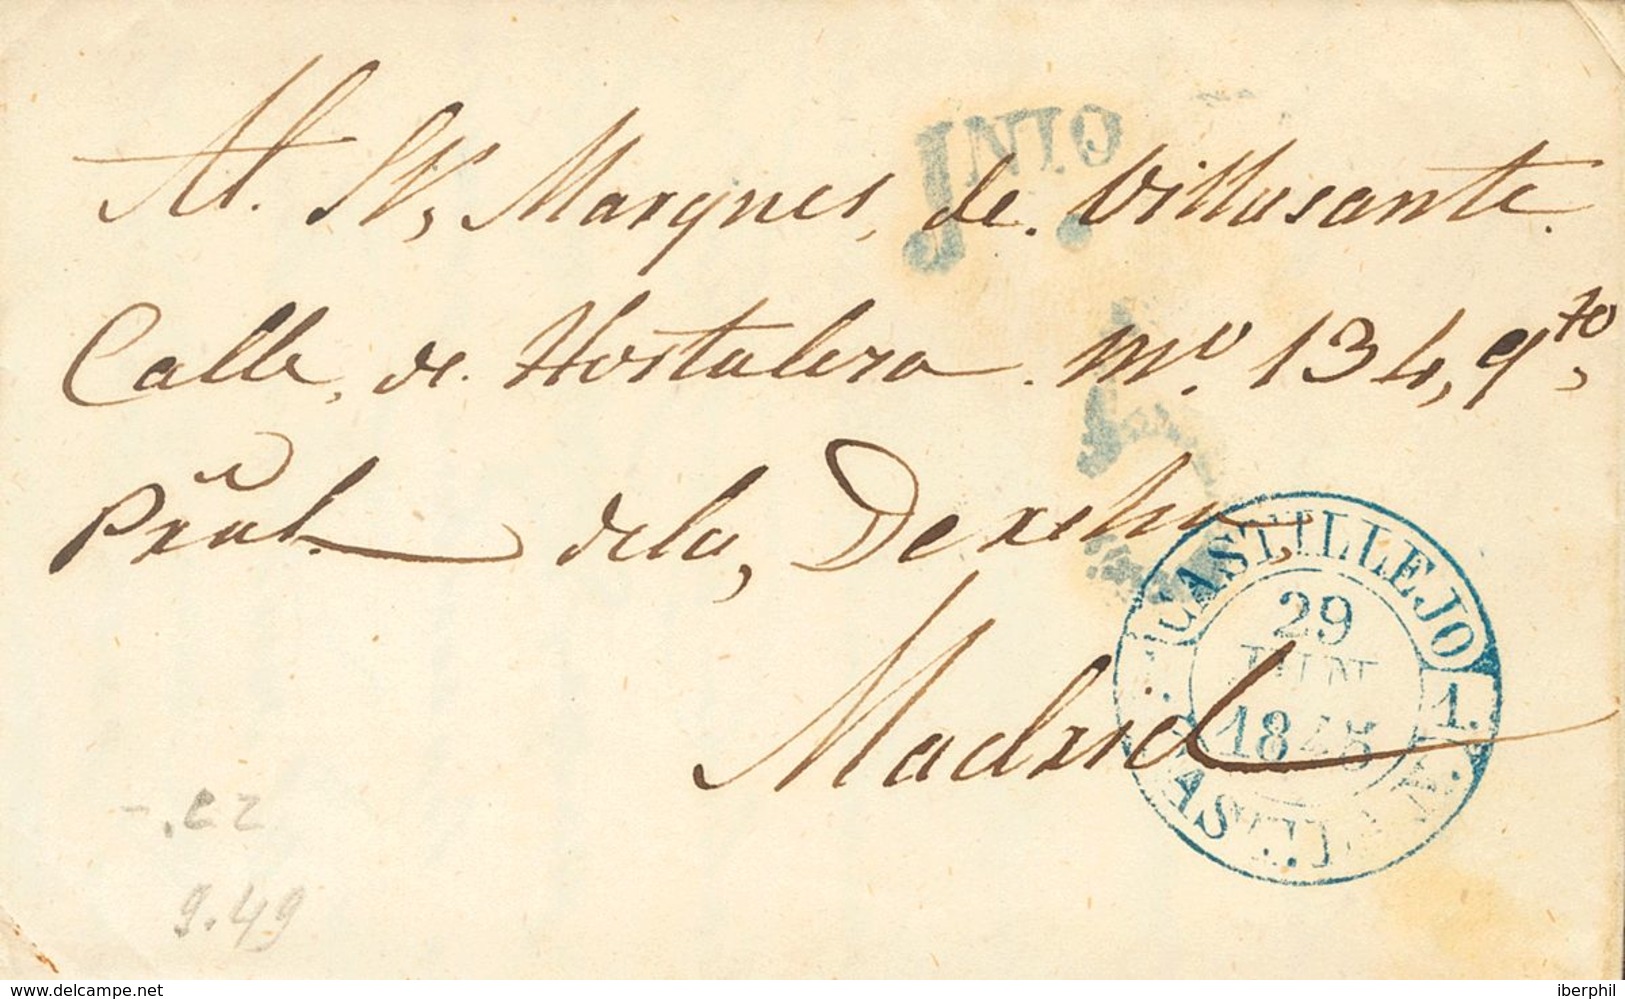 Al. Sr, Marques, de. Villasante.
Calle, de. Hortaleza. nº. 134, qto,
Pral. dela, Derecha,
Madrid
JNIO
CASTILLEJO
1.
29
JUN
1845
-.22
9.49
www.delcampe.net
iberphil